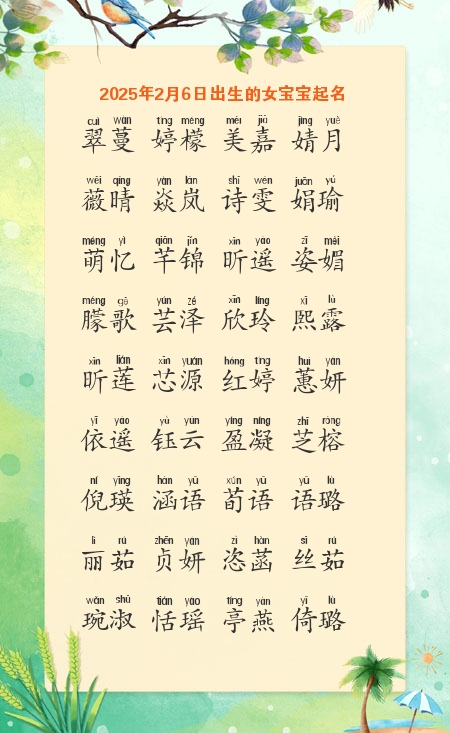 2025年2月6日出生的女宝宝起名
cuì wàn tíng méng měi jiā jìng yuè
翠蔓 婷檬 美嘉 婧月
wēi qíng yàn lán shī wén juān yú
薇晴 焱岚 诗雯 娟瑜
méng yì qiān jǐn xīn yáo zī mèi
萌忆 芊锦 昕遥 姿媚
méng gē yún zé xīn líng xī lù
朦歌 芸泽 欣玲 熙露
xīn lián xīn yuán hóng tíng huì yán
昕莲 芯源 红婷 蕙妍
yī yáo yù yún yíng níng zhī róng
依遥 钰云 盈凝 芝榕
ní yīng hán yǔ xún yǔ yǔ lù
倪瑛 涵语 荀语 语璐
lì rú zhēn yán zì hàn sī rú
丽茹 贞妍 恣菡 丝茹
wǎn shū tián yáo tíng yàn yǐ lù
琬淑 恬瑶 亭燕 倚璐